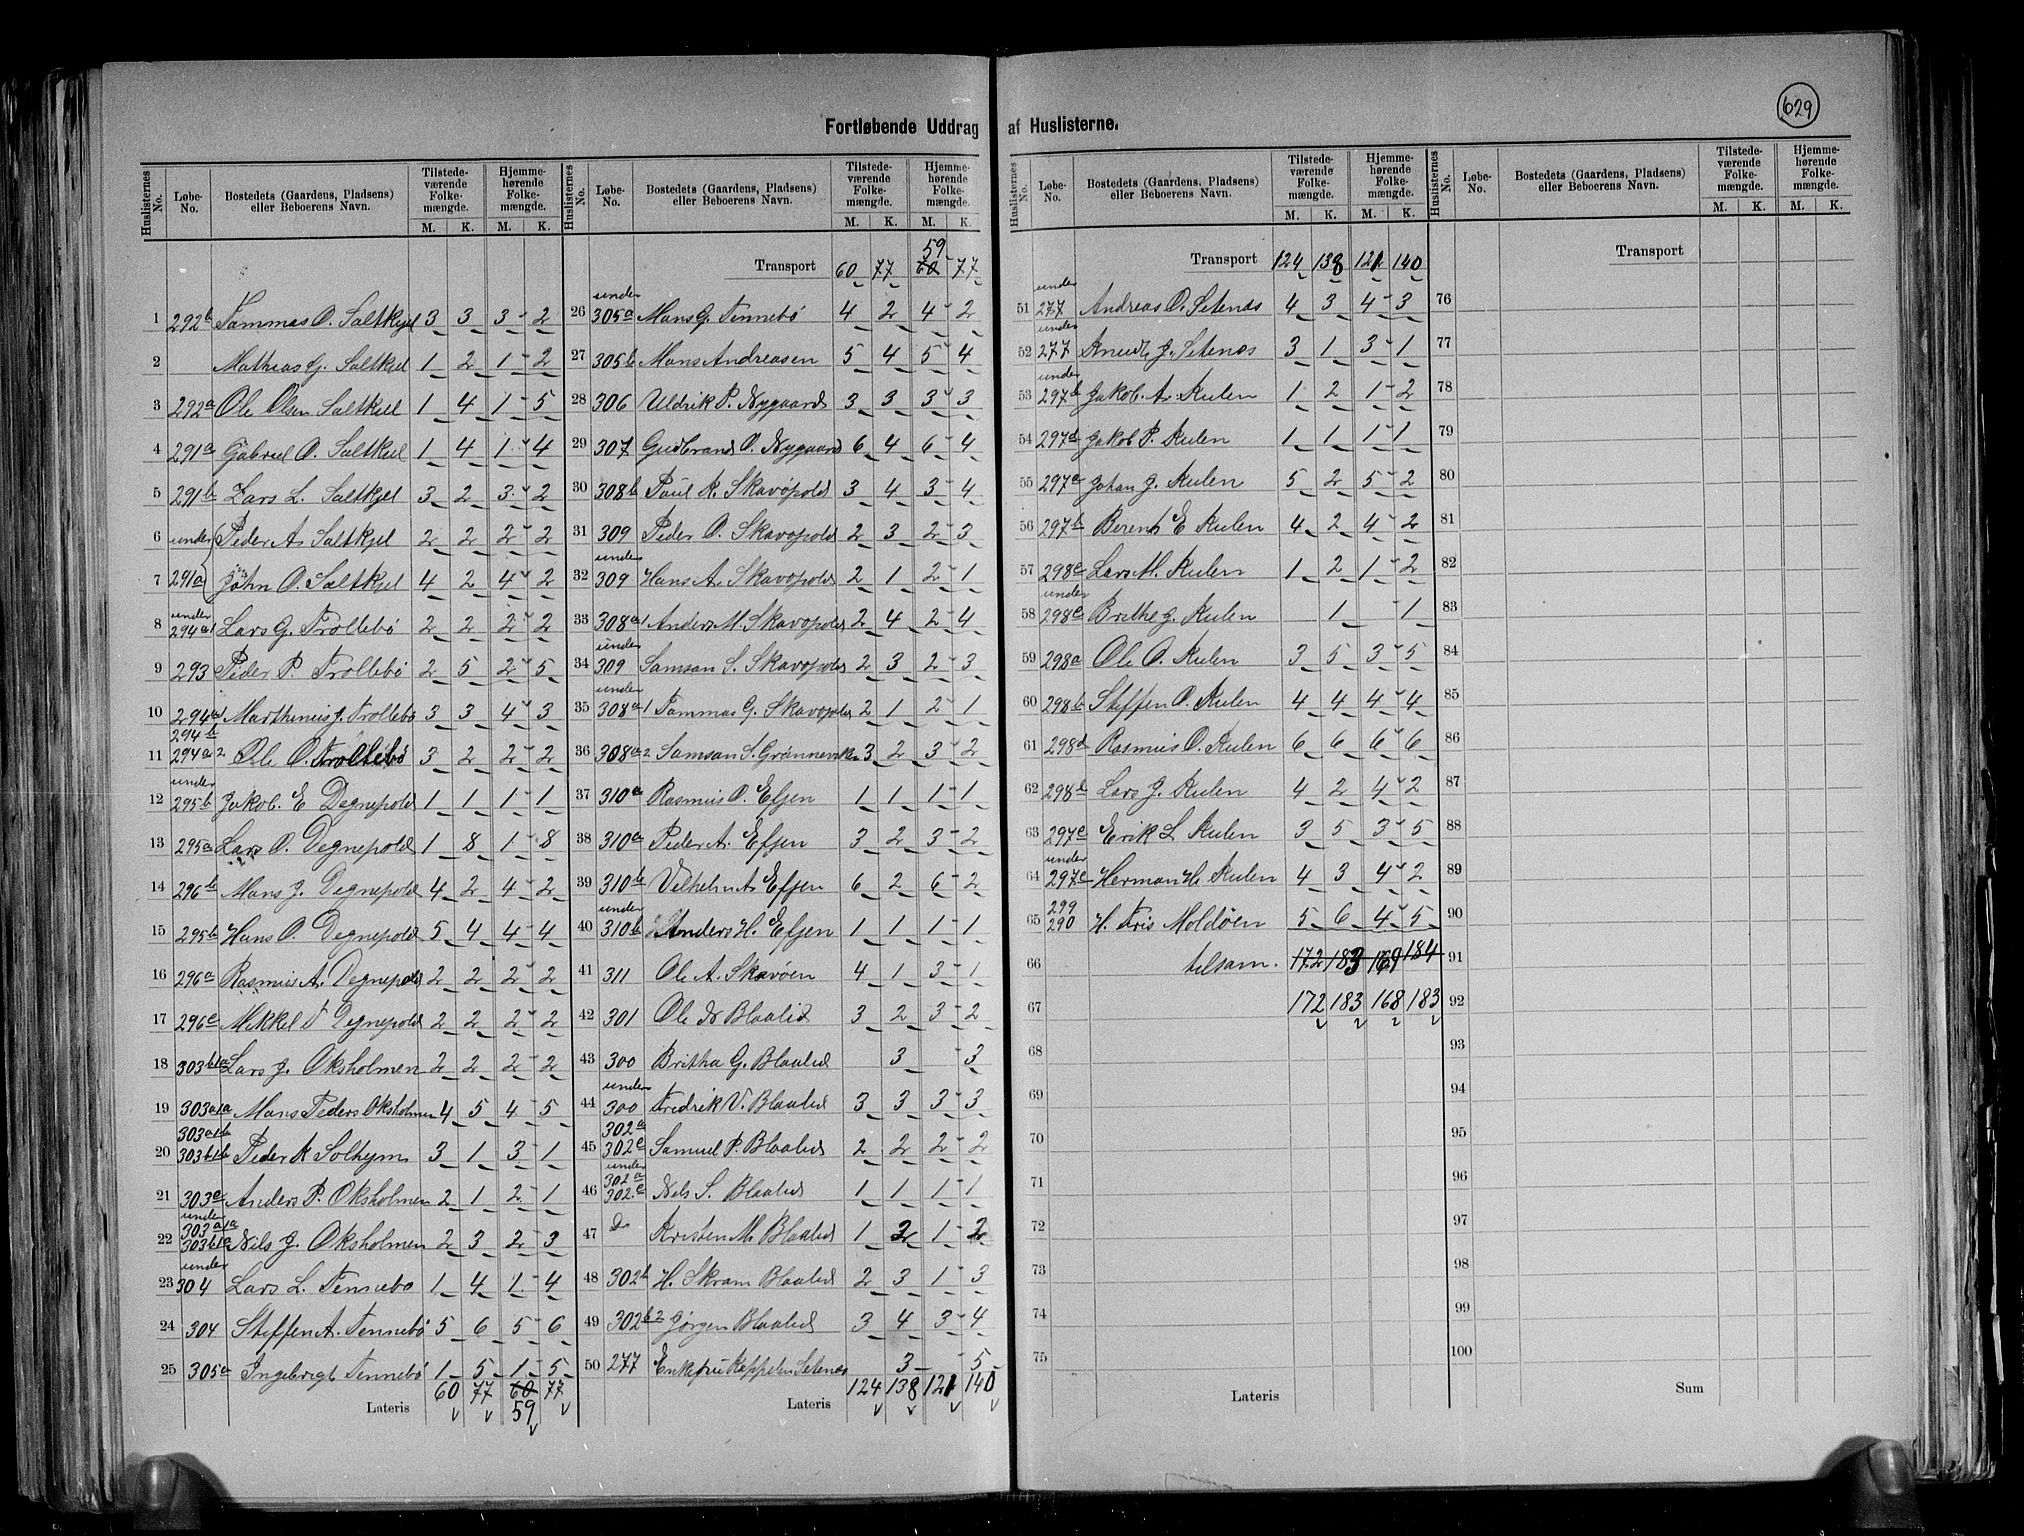 629
Fortløbende Uddrag af Huslisterne.
Huslisternes No. Løbe-No. Bostedets (Gaardens, Pladsens) eller Beboerens Navn. Tilstede-værende Folke-mængde. M. K. Hjemme-hørende Folke-mængde. M. K.
1 292b Tammas O. Saltkjel 3 3 3 2
2 Mathias G. Saltkjel 1 2 1 2
3 292a Ole Olsen Saltkjel 1 4 1 5
4 291a Gabriel O. Saltkjel 1 4 1 4
5 291b Lars L. Saltkjel 3 2 3 2
6 under Peder A. Saltkjel 2 2 2 2
7 291a John O. Saltkjel 4 2 4 2
8 under 294a1 Lars G. Trollebö 2 2 2 2
9 293 Peder P. Trollebö 2 5 2 5
10 294a1 Marthinus J. Trollebö 3 3 4 3
11 294b 294a2 Ole O. Trollebö 3 2 2 2
12 under 295b Jakob E Degnepold 1 1 1 1
13 295a Lars O. Degnepold 1 8 1 8
14 296b Mons J. Degnepold 4 2 4 2
15 295b Hans O. Degnepold 5 4 4 4
16 296a Rasmus A. Degnepold 2 2 2 2
17 296c Mikkel T Degnepold 2 2 2 2
18 303b1a Lars J. Oksholmen 2 2 2 2
19 303a1a Mons Peders Oksholmen 4 5 4 5
20 303a1b 303b1b Peder K Solheim 3 1 3 1
21 303c Anders P. Oksholmen 2 1 2 1
22 under 303a1a 303b1a Nils J. Oksholmen 2 3 2 3
23 under 304 Lars L. Tennebö 1 4 1 4
24 304 Steffen A. Tennebö 5 6 5 6
25 305a Ingebrigt Tennebö 1 5 1 5
Lateris 60 77 60 77
59
Huslisternes No. Løbe-No. Bostedets (Gaardens, Pladsens) eller Beboerens Navn. Tilstede-værende Folke-mængde. M. K. Hjemme-hørende Folke-mængde. M. K.
59
Transport 60 77 60 77
26 under 305a Mons G. Tennebö 4 2 4 2
27 305b Mons Andreasen 5 4 5 4
28 306 Uldrik P. Nygaard 3 3 3 3
29 307 Gudbrand O. Nygaard 6 4 6 4
30 308b Paul R. Skavöpold 3 4 3 4
31 309 Peder O. Skavöpold 2 3 2 3
32 under 309 Hans A. Skavöpold 2 1 2 1
33 308a1 Anders M. Skavöpold 2 4 2 4
34 under 309 Samson S. Skavöpold 2 3 2 3
35 under 308a1 Tammas G. Skavöpold 2 1 2 1
36 308a2 Samson S. Grönneviken 3 2 3 2
37 310a Rasmus O. Efjen 1 1 1 1
38 310a Peder A. Efjen 3 2 3 2
39 310b Vilhelm A. Efjen 6 2 6 2
40 under 310b Anders H. Efjen 1 1 1 1
41 311 Ole A. Skavöen 4 1 3 1
42 301 Ole N Blaalid 3 2 3 2
43 300 Britha G. Blaalid 3 3
44 under 300 Fredrik V. Blaalid 3 3 3 3
45 302a 302c Samuel P. Blaalid 2 2 2 2
46 under 302a 302c Nils S. Blaalid 1 1 1 1
47 Do Kristen M. Blaalid 1 2 1 2
48 302b H. Skram Blaalid 2 3 1 3
49 302b2 Jørgen Blaalid 3 4 3 4
50 277 Enkefru Koppelen Setenæs 3 5
Lateris 124 138 121 140
Huslisternes No. Løbe-No. Bostedets (Gaardens, Pladsens) eller Beboerens Navn. Tilstede-værende Folke-mængde. M. K. Hjemme-hørende Folke-mængde. M. K.
Transport 124 138 121 140
51 under 277 Andreas O. Setenæs 4 3 4 3
52 under 277 Knud J. Setenæs 3 1 3 1
53 under 297b Jakob A. Rulen 1 2 1 2
54 297d Jakob P. Rulen 1 1 1 1
55 297a Johan J. Rulen 5 2 5 2
56 297b Berent E Rulen 4 2 4 2
57 298c Lars M. Rulen 1 2 1 2
58 under 298c Brithe J. Rulen 1 1
59 298a Ole O. Rulen 3 5 3 5
60 298b Steffen O. Rulen 4 4 4 4
61 298d Rasmus O. Rulen 6 6 6 6
62 298d Lars J. Rulen 4 2 4 2
63 297c Erik L Rulen 3 5 3 5
64 under 297c Herman H. Rulen 4 3 4 2
65 299 290 H. Friis Moldöen 5 6 4 5
66 tilsam. 172 183 169 184
67 172 183 168 183
68
69
70
71
72
73
74
75
Lateris
Huslisternes No. Løbe-No. Bostedets (Gaardens, Pladsens) eller Beboerens Navn. Tilstede-værende Folke-mængde. M. K. Hjemme-hørende Folke-mængde. M. K.
Transport
76
77
78
79
80
81
82
83
84
85
86
87
88
89
90
91
92
93
94
95
96
97
98
99
100
Sum